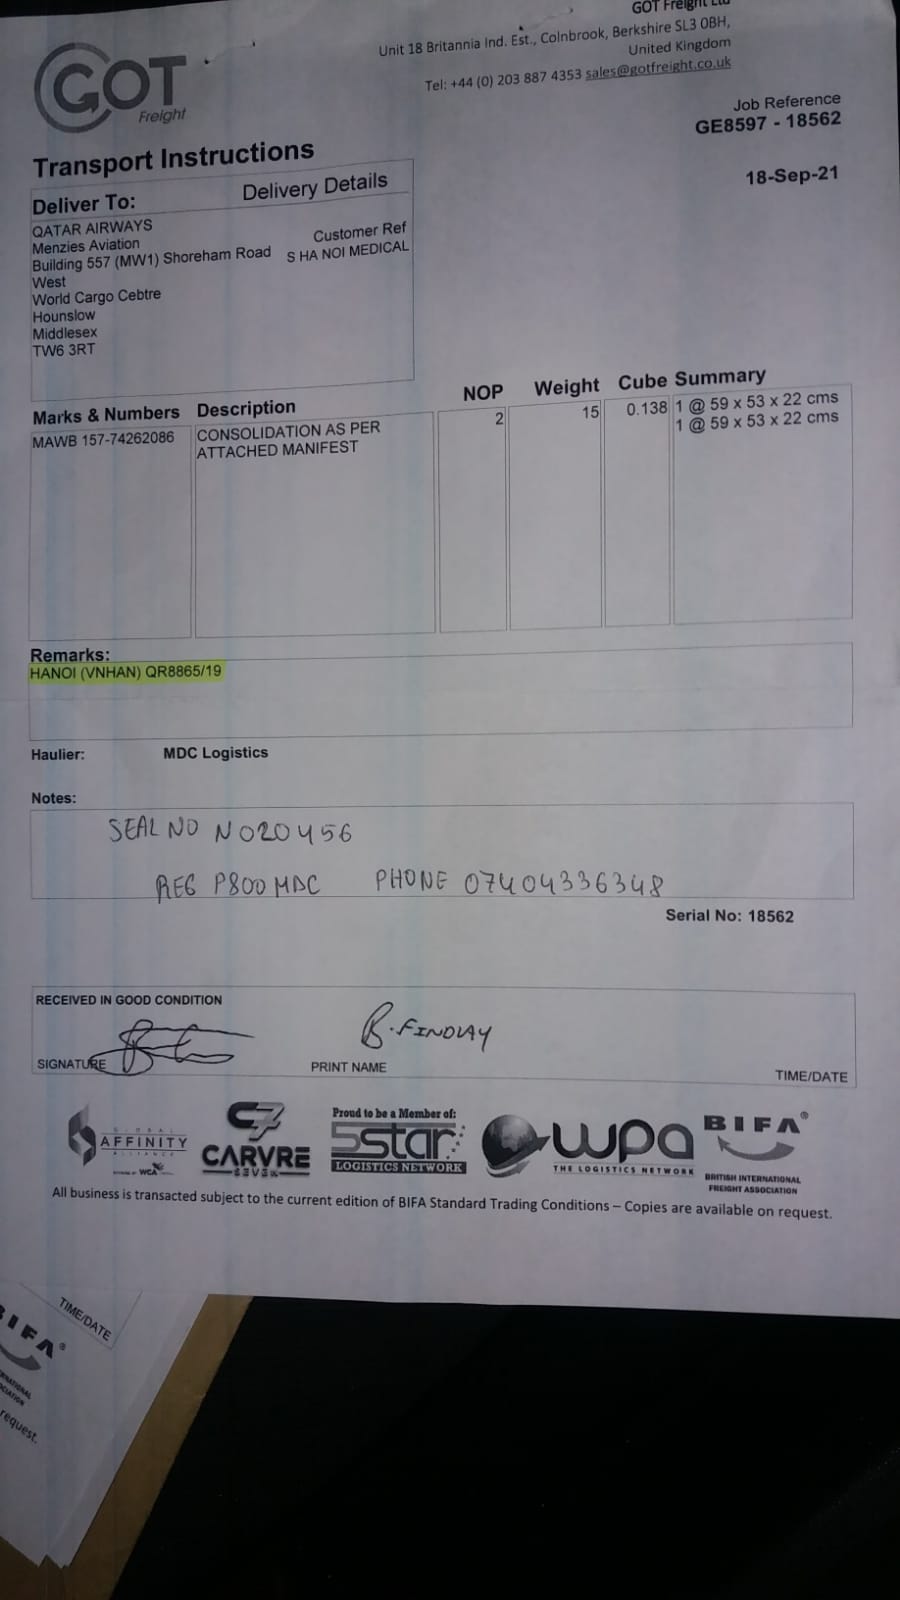 GOT Freight Ltd
Unit 18 Britannia Ind. Est., Colnbrook, Berkshire SL3 0BH,
United Kingdom
Tel: +44 (0) 203 887 4353 sales@gotfreight.co.uk
GOT
Freight
Job Reference
GE8597 - 18562
Transport Instructions
18-Sep-21
Deliver To:
Delivery Details
QATAR AIRWAYS
Menzies Aviation
Building 557 (MW1) Shoreham Road
West
World Cargo Cebtre
Hounslow
Middlesex
TW6 3RT
Customer Ref
S HA NOI MEDICAL
Marks & Numbers Description NOP Weight Cube Summary
MAWB 157-74262086 CONSOLIDATION AS PER 2 15 0.138 1 @ 59 x 53 x 22 cms
ATTACHED MANIFEST 1 @ 59 x 53 x 22 cms
Remarks:
HANOI (VNHAN) QR8865/19
Haulier: MDC Logistics
Notes:
SEAL NO N020456
REG P800MDC PHONE 07404336348
Serial No: 18562
RECEIVED IN GOOD CONDITION
B.FINDLAY
SIGNATURE PRINT NAME TIME/DATE
GLOBAL
AFFINITY
ALLIANCE
WCA
C7
CARVRE
SEVEN
Proud to be a Member of:
5star
LOGISTICS NETWORK
wpa
THE LOGISTICS NETWORK
BIFA®
BRITISH INTERNATIONAL
FREIGHT ASSOCIATION
All business is transacted subject to the current edition of BIFA Standard Trading Conditions – Copies are available on request.
TIME/DATE
BIFA®
request.